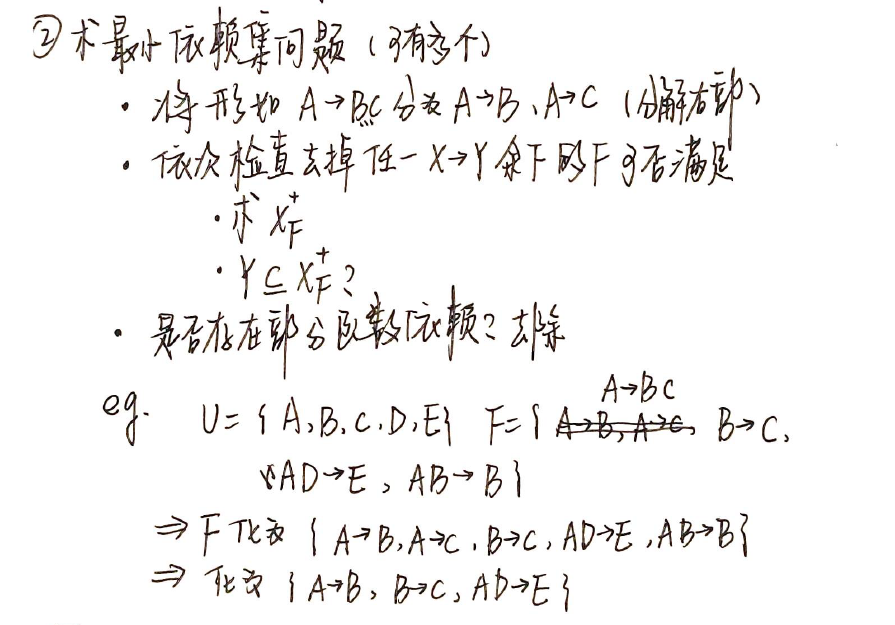 ② 求最小依赖集问题（可有多个）
· 将形如 A→BC 分为 A→B、A→C（分解右部）
· 依次检查去掉任一 X→Y 余下的F可否满足
· 求 X_F^+
· Y⊆X_F^+？
· 是否存在部分函数依赖？去除
A→BC
eg. U={A,B,C,D,E} F={A→B,A→C, B→C,
AD→E, AB→B}
⇒ F化为 {A→B,A→C,B→C,AD→E,AB→B}
⇒ 化为 {A→B, B→C, AD→E}